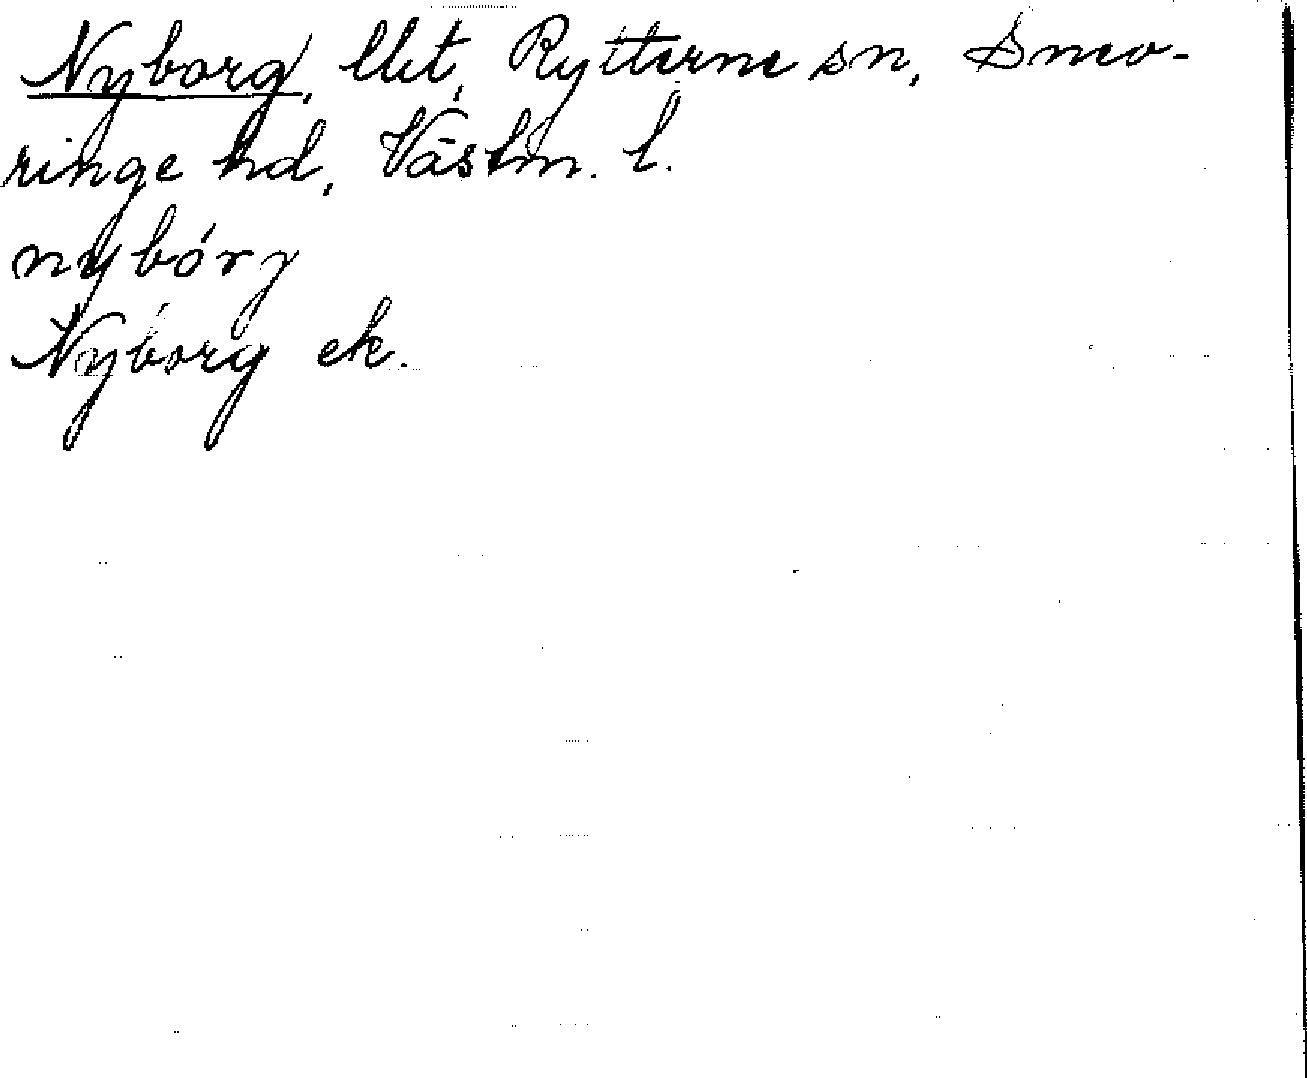 Nyborg, lht, Rytterne sn, Snev-
ringe hd, Västm. l.
nybóry
Nyborg ek.